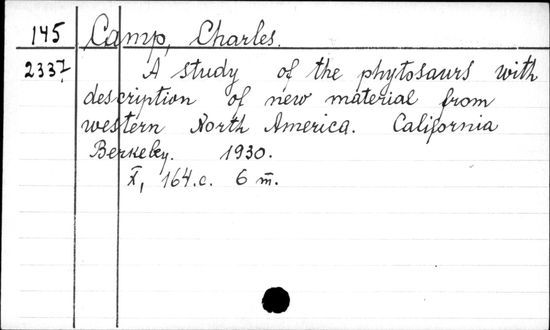 145 Camp, Charles.
2337 A study of the phytosaurs with
description of new material from
western North America. California
Berkeley. 1930.
X, 164.c. 6 m.